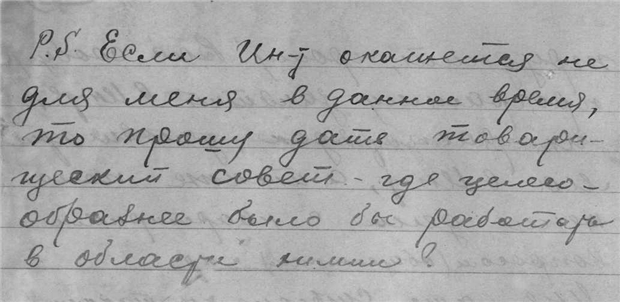 P.S. Если Ин-т окажется не
для меня в данное время,
то прошу дать товари-
щеский совет - где целесо-
образнее было бы работать
в области химии?